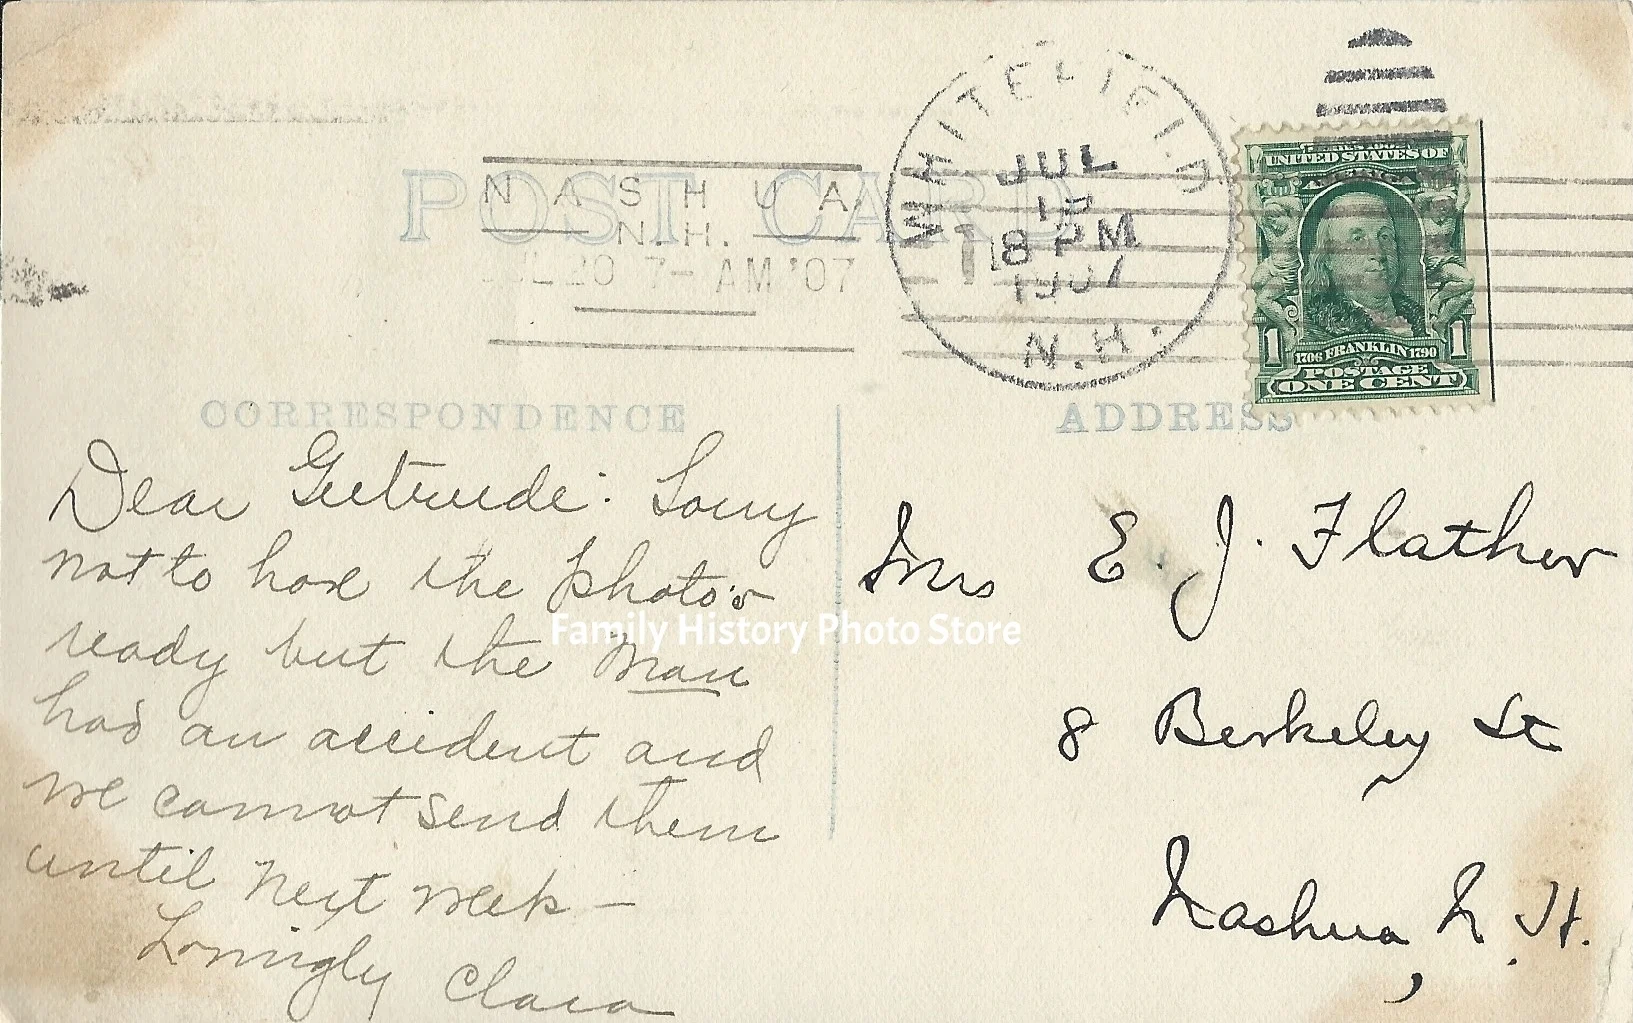 POST CARD
NASHUA,
N.H.
JUL 20 7- AM '07
WHITEFIELD
JUL
8 PM
1907
N.H.
UNITED STATES OF
AMERICA
1 1706 FRANKLIN 1790 1
POSTAGE
ONE CENT
CORRESPONDENCE
ADDRESS
Dear Gertrude: Sorry
not to have the photo's
ready but the Man
had an accident and
we cannot send them
until next week —
Lovingly Clara
Mrs E. J. Flather
8 Berkeley St
Nashua, N. H.
Family History Photo Store